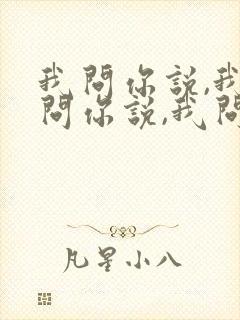 我問你説,我
問你説,我問
凡星小八